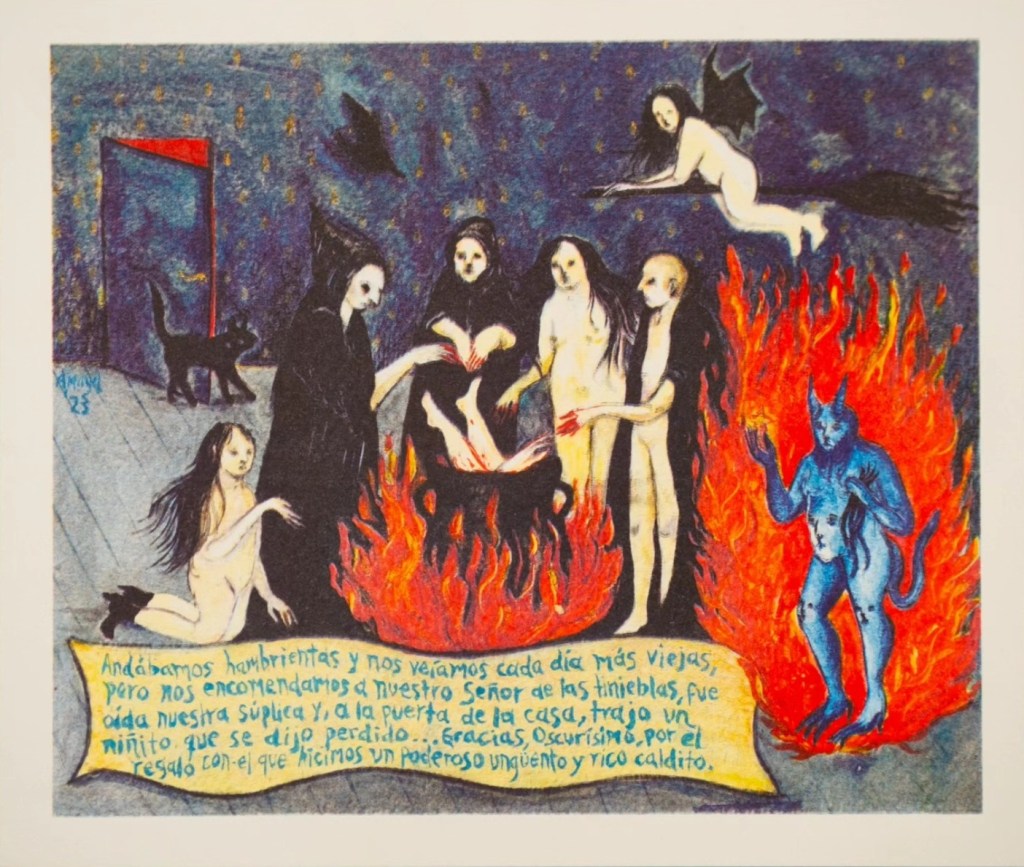 '23
Andábamos hambrientas y nos veíamos cada día más viejas,
pero nos encomendamos a nuestro Señor de las tinieblas, fue
oída nuestra súplica y, a la puerta de la casa, trajo un
niñito que se dijo perdido... Gracias, Oscurísimo, por el
regalo con el que hicimos un poderoso ungüento y rico caldito.